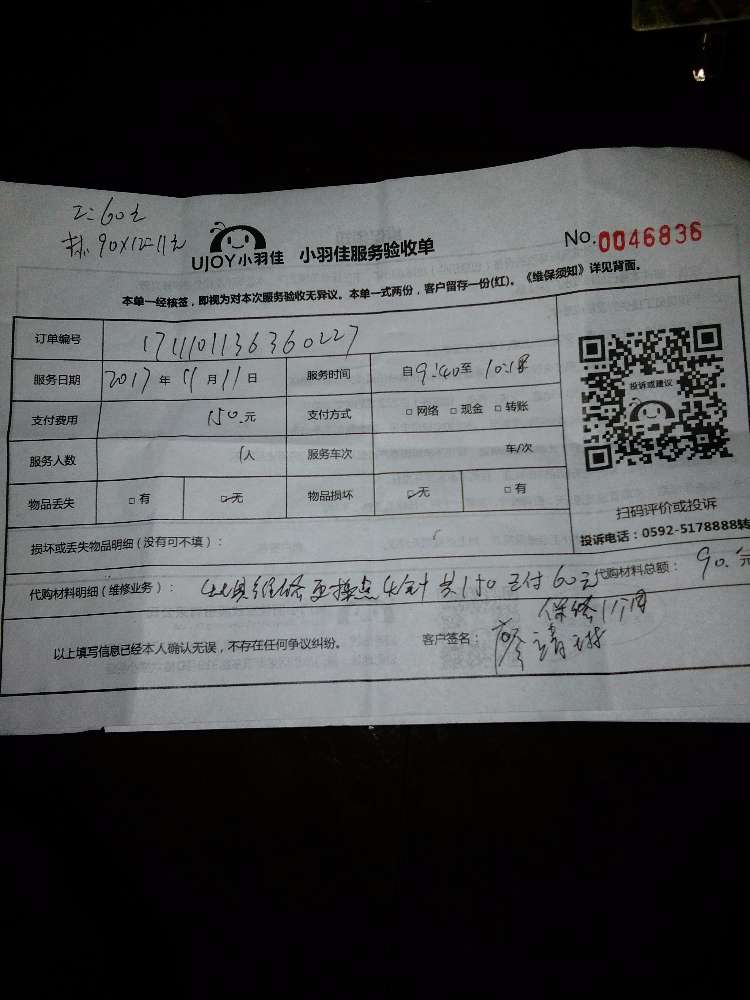 工:60元
材:90×12=11元
UJOY小羽佳 小羽佳服务验收单 No.0046836
本单一经核签，即视为对本次服务验收无异议。本单一式两份，客户留存一份(红)。《维保须知》详见背面。
订单编号 1711101136360227
服务日期 2017年11月11日 服务时间 自9:40至10:18
支付费用 150.元 支付方式 □网络 □现金 □转账
服务人数 1人 服务车次 车/次
物品丢失 □有 □无 物品损坏 □无 □有
损坏或丢失物品明细（没有可不填）：
代购材料明细（维修业务）： 灶具维修更换点火针 共150 已付60元 代购材料总额： 90.元
保修1个月
以上填写信息已经本人确认无误，不存在任何争议纠纷。 客户签名：
投诉或建议
扫码评价或投诉
投诉电话：0592-5178888转